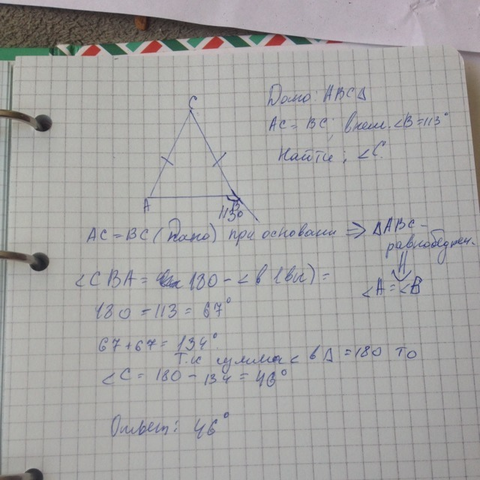 C
Дано: ABC∆
AC = BC; внеш. ∠B = 113°
Найти; ∠C.
A B
113°
AC = BC (Дано) при основани ⇒ ∆ABC – равнобедрен.
⇓
∠A = ∠B
∠CBA = 180 - ∠B (вн) =
180 - 113 = 67°
67 + 67 = 134°
Т.к сумма ∠ в ∆ = 180 то
∠C = 180 - 134 = 46°
Ответ: 46°